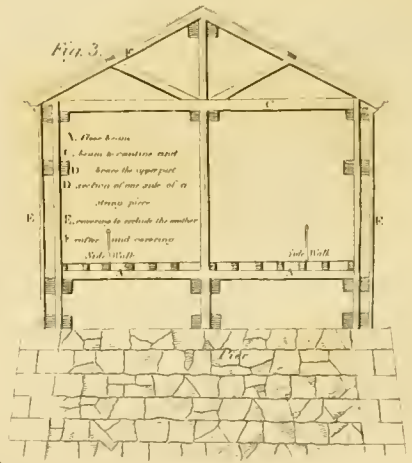 Fig. 3.
F
C
A. Floor beam
C. beam to confine and
D brace the upper part
D section of one side of a
string piece
E. covering to exclude the weather
F rafter and covering
Side Walk
Side Walk
E
E
A
A
Pier